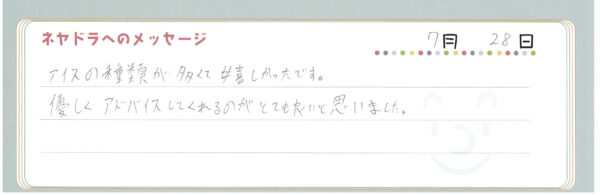 ネヤドラへのメッセージ
7月 28日
アイスの種類が多くて嬉しかったです。
優しくアドバイスしてくれるのがとても良いと思いました。